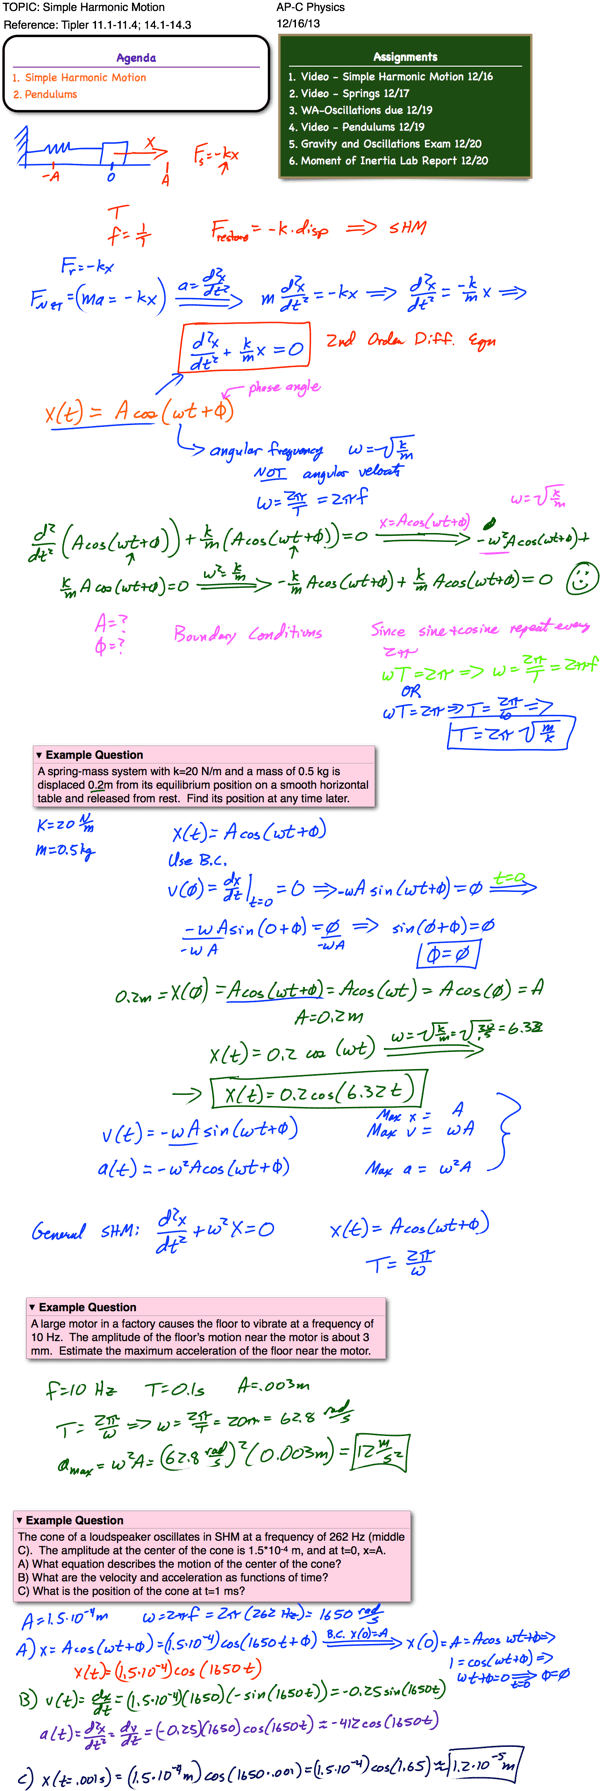 TOPIC: Simple Harmonic Motion
AP-C Physics
Reference: Tipler 11.1-11.4; 14.1-14.3
12/16/13
Agenda
1. Simple Harmonic Motion
2. Pendulums
Assignments
1. Video - Simple Harmonic Motion 12/16
2. Video - Springs 12/17
3. WA-Oscillations due 12/19
4. Video - Pendulums 12/19
5. Gravity and Oscillations Exam 12/20
6. Moment of Inertia Lab Report 12/20
X
-A 0 A
Fs=-kx
T
f=1/T
Frestore=-k·disp ⇒ SHM
Fr=-kx
FNET=(ma=-kx) a=d²x/dt² ⇒ m d²x/dt²=-kx ⇒ d²x/dt²=-k/m x ⇒
d²x/dt²+k/m x=0 2nd Order Diff. Eqn
phase angle
x(t)=Acos(ωt+ϕ)
angular frequency ω=√(k/m)
NOT angular velocity
ω=2π/T=2πf
ω=√(k/m)
d²/dt²(Acos(ωt+ϕ))+k/m(Acos(ωt+ϕ))=0 x=Acos(ωt+ϕ) ⇒ -ω²Acos(ωt+ϕ)+
k/m Acos(ωt+ϕ)=0 ω²=k/m ⇒ -k/m Acos(ωt+ϕ)+k/m Acos(ωt+ϕ)=0
A=?
ϕ=?
Boundary Conditions
Since sine+cosine repeat every
2π
ωT=2π ⇒ ω=2π/T=2πf
OR
ωT=2π ⇒ T=2π/ω ⇒
T=2π√(m/k)
▾ Example Question
A spring-mass system with k=20 N/m and a mass of 0.5 kg is
displaced 0.2m from its equilibrium position on a smooth horizontal
table and released from rest. Find its position at any time later.
K=20 N/m
m=0.5kg
x(t)=Acos(ωt+ϕ)
Use B.C.
v(0)=dx/dt|t=0=0 ⇒ -ωAsin(ωt+ϕ)=0 t=0 ⇒
-ωAsin(0+ϕ)/-ωA=0/-ωA ⇒ sin(0+ϕ)=0
ϕ=0
0.2m=x(0)=Acos(ωt+ϕ)=Acos(ωt)=Acos(0)=A
A=0.2m
x(t)=0.2cos(ωt) ω=√(k/m)=√(20/.5)=6.32 ⇒
→ x(t)=0.2cos(6.32t)
v(t)=-ωAsin(ωt+ϕ)
a(t)=-ω²Acos(ωt+ϕ)
Max x = A
Max v = ωA
Max a = ω²A
General SHM: d²x/dt²+ω²x=0 x(t)=Acos(ωt+ϕ)
T=2π/ω
▾ Example Question
A large motor in a factory causes the floor to vibrate at a frequency of
10 Hz. The amplitude of the floor's motion near the motor is about 3
mm. Estimate the maximum acceleration of the floor near the motor.
f=10 Hz T=0.1s A=.003m
T=2π/ω ⇒ ω=2π/T=20π=62.8 rad/s
amax=ω²A=(62.8 rad/s)²(0.003m)=12 m/s²
▾ Example Question
The cone of a loudspeaker oscillates in SHM at a frequency of 262 Hz (middle
C). The amplitude at the center of the cone is 1.5*10⁻⁴ m, and at t=0, x=A.
A) What equation describes the motion of the center of the cone?
B) What are the velocity and acceleration as functions of time?
C) What is the position of the cone at t=1 ms?
A=1.5·10⁻⁴m ω=2πf=2π(262 Hz)=1650 rad/s
A) x=Acos(ωt+ϕ)=(1.5·10⁻⁴)cos(1650t+ϕ) B.C. x(0)=A → x(0)=A=Acos ωt+ϕ ⇒
1=cos(ωt+ϕ) ⇒
x(t)=(1.5·10⁻⁴)cos(1650t)
ωt+ϕ=0 t=0 ⇒ ϕ=0
B) v(t)=dx/dt=(1.5·10⁻⁴)(1650)(-sin(1650t))=-0.25sin(1650t)
a(t)=d²x/dt²=dv/dt=(-0.25)(1650)cos(1650t)≈-412cos(1650t)
C) x(t=.001s)=(1.5·10⁻⁴m)cos(1650·.001)=(1.5·10⁻⁴)cos(1.65)≈1.2·10⁻⁵m